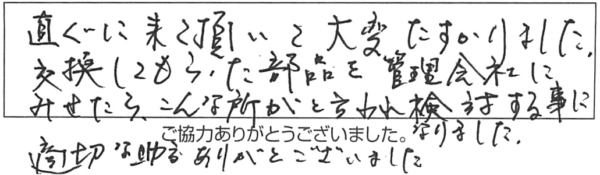 直ぐに来て頂いて大変たすかりました。
交換してもらった部品を管理会社に
みせたら、こんな所がと言われ検討する事に
ご協力ありがとうございました。なりました。
適切な助言ありがとございました